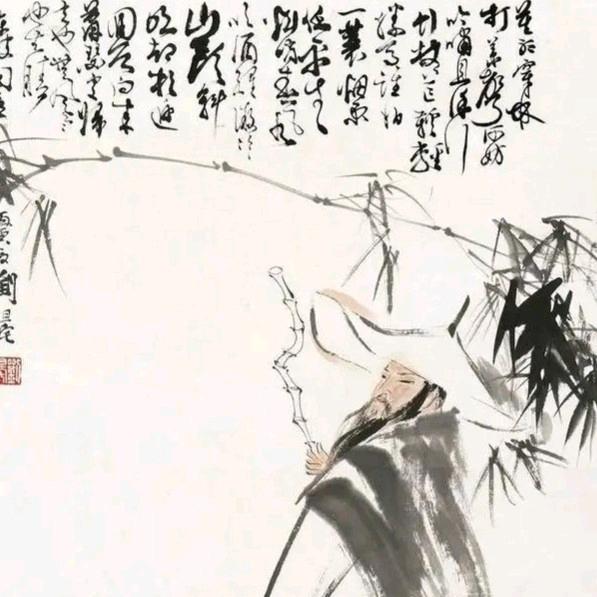 莫聽穿林
打葉聲何妨
吟嘯且徐行
竹杖芒鞋輕
勝馬誰怕
一蓑烟雨
任平生
料峭春風
吹酒醒微冷
山頭斜
照却相迎
回首向來
蕭瑟處歸
去也無風雨
也無晴
劉旦宅